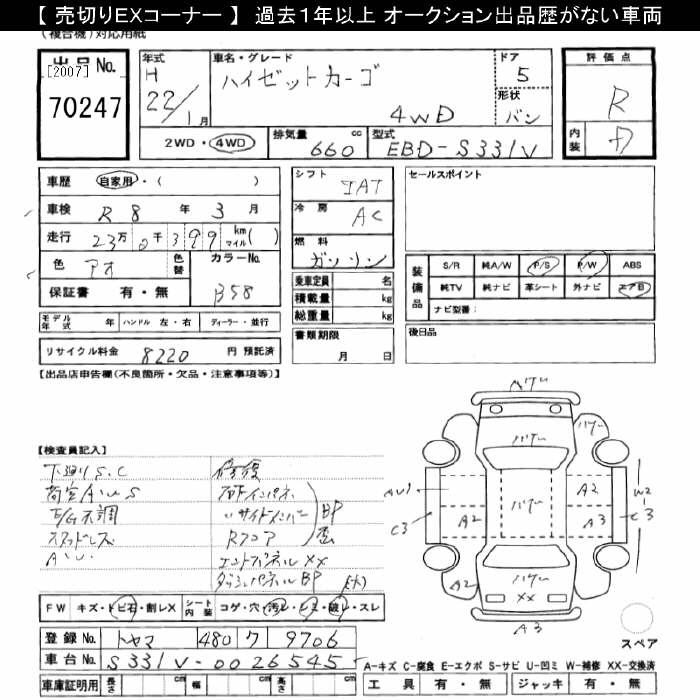 【 売切りEXコーナー 】 過去1年以上 オークション出品歴がない車両
(複合機)対応用紙
出品 No.
[2007]
70247
年式 車名・グレード ドア 評価点
H 22/1月 ハイゼットカーゴ 5 R
形状
4WD バン
2WD・4WD 排気量 660 cc 型式 EBD-S331V 内装 D
車歴 自家用・( )
車検 R 8 年 3 月
走行 23万 0千 399 km マイル( )
色 アオ 色替 カラーNo. B58
保証書 有・無
モデル年式 年 ハンドル 左・右 ディーラー・並行
リサイクル料金 8220 円 預託済
シフト IAT
冷房 AC
燃料 ガソリン
乗車定員 名
積載量 kg
総重量 kg
書類期限
月 日
セールスポイント
装備品 S/R 純A/W P/S P/W ABS
純TV 純ナビ 革シート 外ナビ エアB
ナビ型番:
後日品
【出品店申告欄(不良箇所・欠品・注意事項等)】
【検査員記入】
下廻りS.C 修復
荷室AUS
E/G不調 〃サイドインパー BP
スタッドレス Rフロア 歪
A.U. エンドパネルXX
ダッシュパネルBP (大)
バゲー
バゲー バゲー
AU1 バゲー A2 W2
C3 A2 A3 C3
A2 バゲー XX
A3
スペア
FW キズ・トビ石・割レX シート内装 コゲ・穴・汚レ・シミ・破レ・スレ
登録 No. トヤマ 480 ワ 9706
車台 No. S331V-0026545
車庫証明用 長さ cm 幅 cm 高さ cm
A-キズ C-腐食 E-エクボ S-サビ U-凹ミ W-補修 XX-交換済
工具 有・無 ジャッキ 有・無